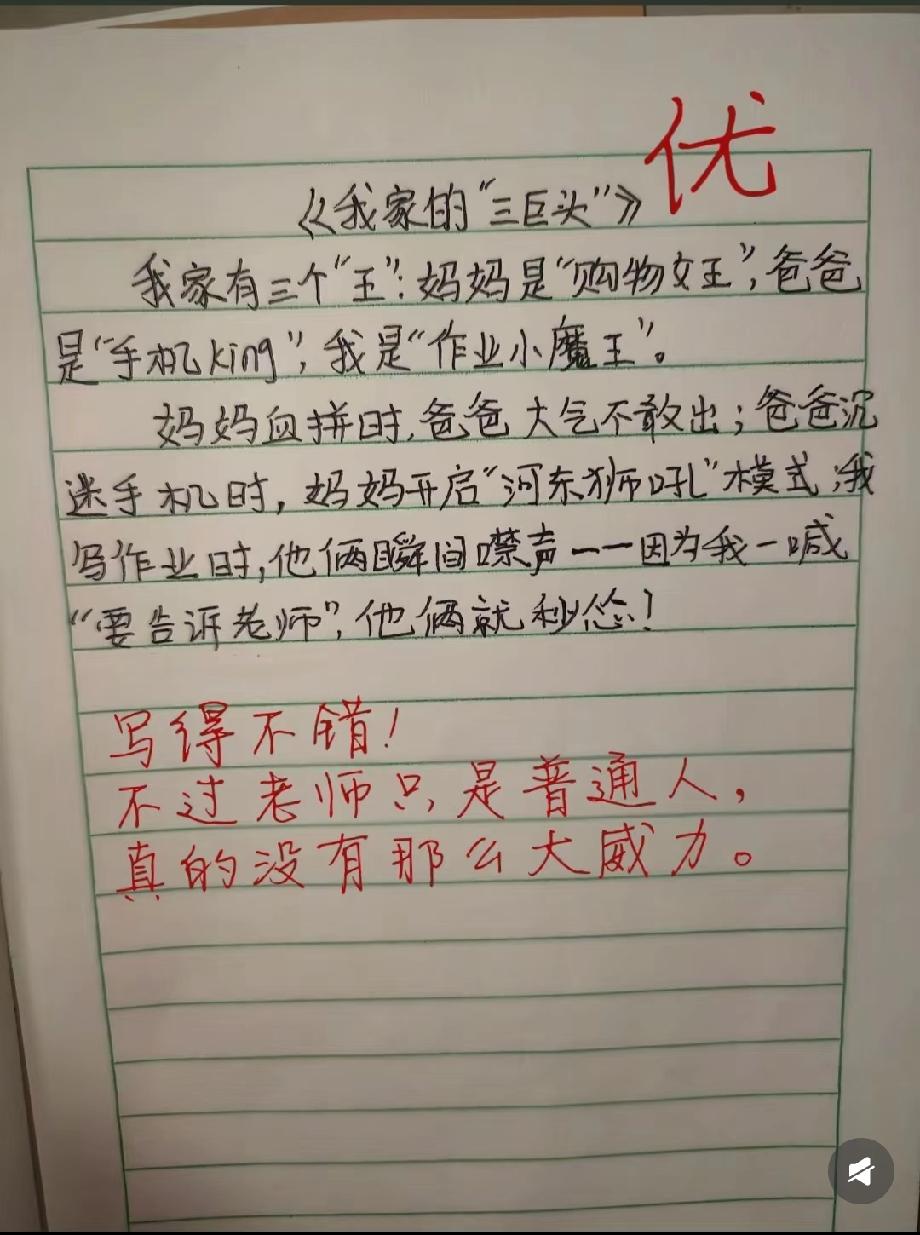 优
《我家的“三巨头”》
我家有三个“王”:妈妈是“购物女王”,爸爸
是“手机King”,我是“作业小魔王”。
妈妈血拼时,爸爸大气不敢出;爸爸沉
迷手机时,妈妈开启“河东狮吼”模式;我
写作业时,他俩瞬间噤声——因为我一喊
“要告诉老师”,他俩就秒怂!
写得不错!
不过老师只是普通人,
真的没有那么大威力。